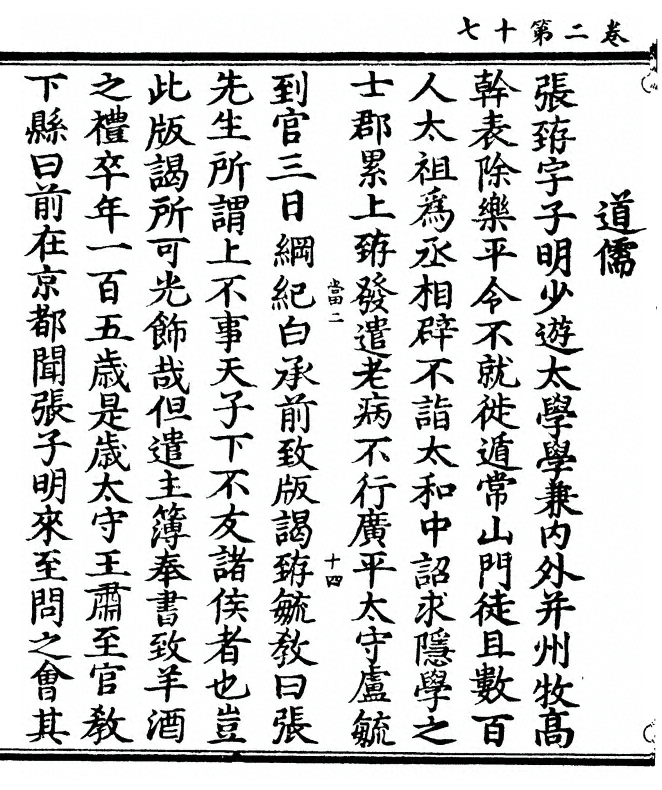 卷二第十七
道儒
張臶字子明少遊太學學兼內外并州牧高
幹表除樂平令不就徙遁常山門徒且數百
人太祖爲丞相辟不詣太和中詔求隱學之
士郡累上臶發遣老病不行廣平太守盧毓
當二
十四
到官三日綱紀白承前致版謁臶毓教曰張
先生所謂上不事天子下不友諸侯者也豈
此版謁所可光飾哉但遣主簿奉書致羊酒
之禮卒年一百五歲是歲太守王肅至官教
下縣曰前在京都聞張子明來至問之會其